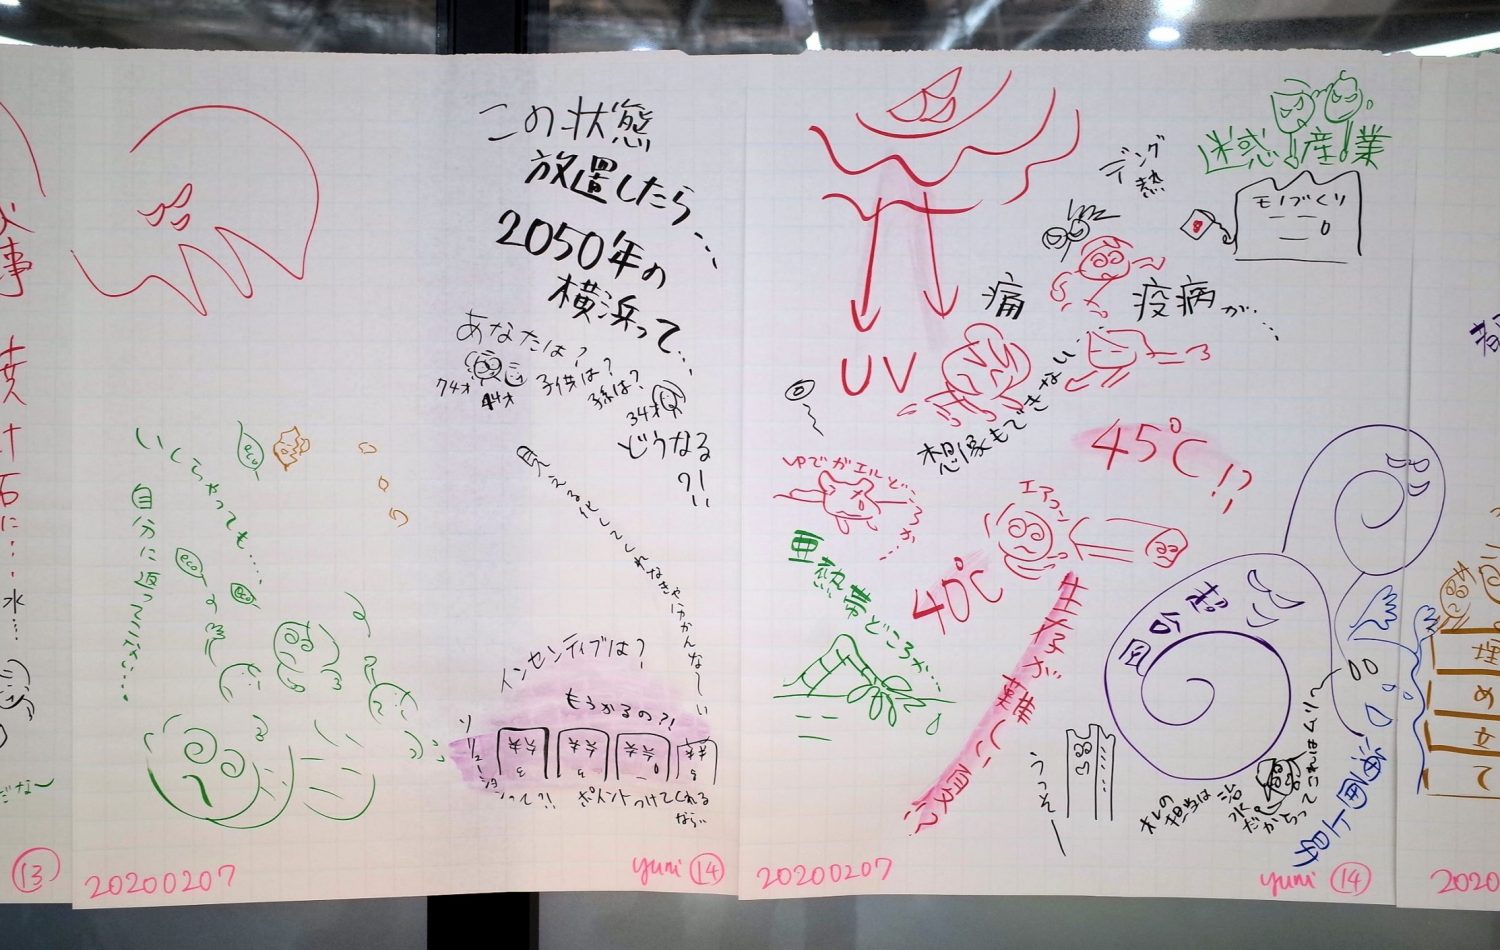 事
石に…
水…
だな〜
⑬
この状態
放置したら…
2050年の
横浜って…
あなたは？
子供は？
孫は？
74才
44才
34才
どうなる
?!
いくらやっても…
自分に返ってこない…
eco
eco
見える化してくれなきゃ分かんな〜い
インセンティブは？
もうかるの?!
ソリューションって?!
ポイントつけてくれる
なら…
20200207
yumi ⑭
UV
痛
デング
熱
疫病が…
想像もできない
迷惑産業
モノづくり
45℃!?
ゆでガエルどころか…
亜熱帯どころか…
エアコン
40℃
生存が難しい
台風
うっそー
オレの
担当は
治水
だから
ってこれはムリ
海面上昇
埋め立て
20200207
yumi ⑭
2020